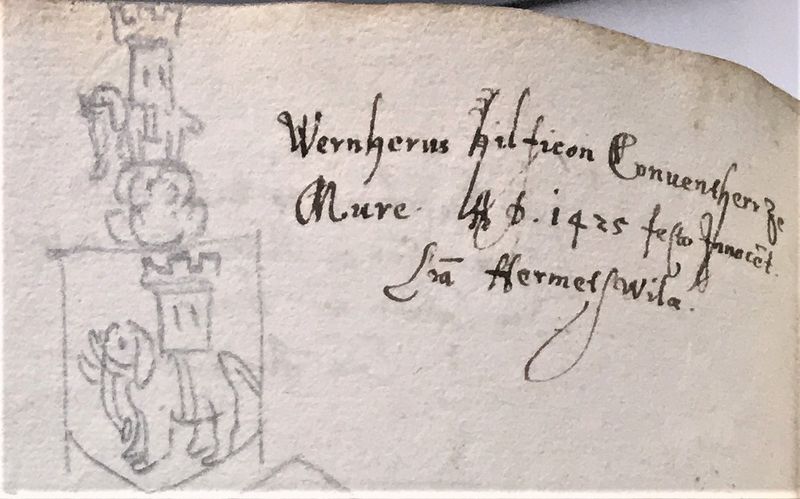 Wernherus Hilficon Conuentherr ze
Mure. A D. 1425 festo Innocēt.
Lrā Hermetswila.